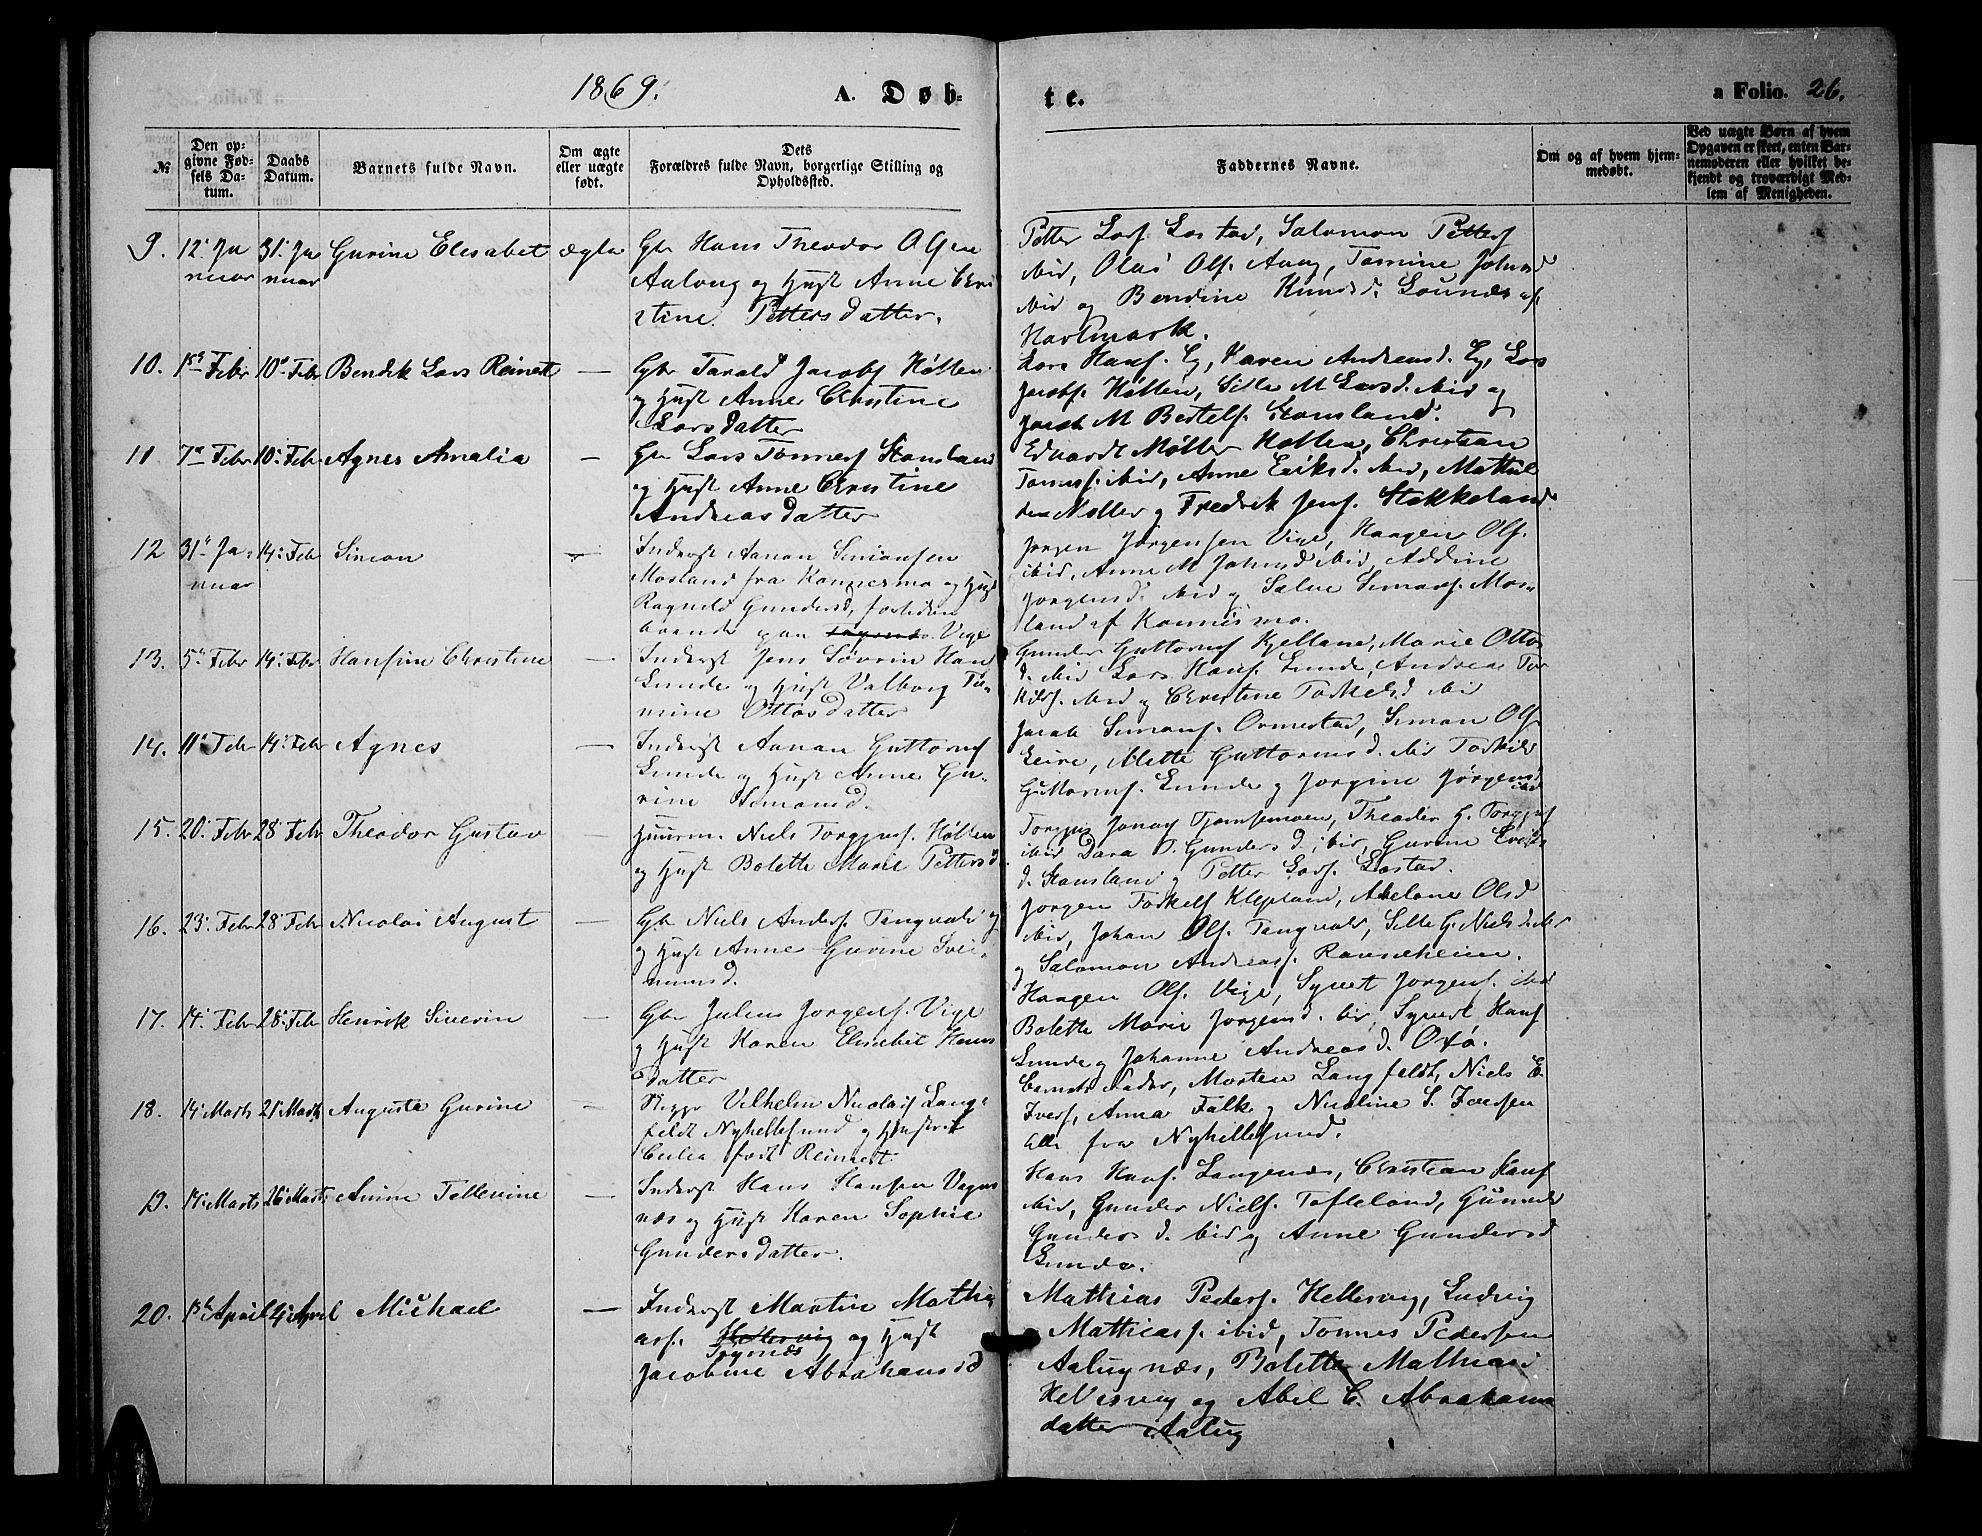 1869. A. Døb- te. a Folio. 26.
№ Den opgivne Fødsels Datum. Daabs Datum. Barnets fulde Navn. Om ægte eller uægte født. Dets Forældres fulde Navn, borgerlige Stilling og Opholdssted. Faddernes Navne. Om og af hvem hjemmedøbt. Ved uægte Børn af hvem Opgaven er skeet, enten Barnemoderen eller hvilket bekjendt og troværdigt Medlem af Menigheden.
9. 12. Januar 31. Januar Gurine Elisabet ægte
Gbr Hans Theodor Olsen
Aalvog og Hust Anne Chri
stine Pettersdatter.
Petter Lars. Lostad, Salomon Petters.
ibid, Olas Ols. Aaag, Tomine Johnsd
ibid og Bendine Knudsd. Lounds af
Hartmark.
10. 1st Febr 10d Febr Bendik Lars Reinert —
Gbr Tarald Jacobs. Høllen
og Hust Anne Christine
Larsdatter
Lars Hans. Eg, Karen Andreasd. Eg, Lars
Jacobs. Høllen, Sille M Larsd. ibid og
Jacob M Bertels. Stausland.
11 7de Febr 10. Febr Agnes Amalia —
Gbr Lars Tønnes. Stausland
og Hust Anne Christine
Andreasdatter
Edvardt Møller Høllen, Christian
Tønnes. ibid, Anne Eriksd. ibid, Mathil
den Møller og Fredrik Jens. Stokkeland.
12 31. Januar 14. Febr Simon —
Inderst Aanon Simonsen
Mosland fra Konnesmo og Hust
Ragnild Gundersd, forhenv
boende paa Vige
Jørgen Jørgensen Vige, Haagen Ols.
ibid, Anne M Johnsd ibid, Addine
Jorgensd. ibid og Salve Simons. Mos-
land af Konnesmo.
13. 5. Febr 14. Febr Hansine Christine —
Inderst Jens Søvrin Hans
Lunde og Hust Valborg To-
mine Ottosdatter
Gunder Guttorms. Kjelland, Marie Ottos
d. ibid Lars Hans. Lunde, Andreas Tor
kilds. ibid og Christine Torkelsd ibid
14. 11. Febr 14. Febr Agnes —
Inderst Aanon Guttorms.
Lunde og Hust Anne Gu-
rine Simonsd.
Jacob Simons. Ormestad, Simon Ols.
Leire, Mette Guttormsd. ibid Torkild
Guttorms. Lunde og Jorgine Jørgensd
ibid
15. 20. Febr 28. Febr Theodor Gustav —
Huusm. Niels Torgjus. Høllen
og Hust Bolette Marie Pettersd
Torgjus Jonas. Tjomsemoen, Theodor G. Torgjus.
ibid Dara T. Gundersd ibid, Gurine Eriks
d. Stausland og Petter Lars. Lostad.
16. 23. Febr 28 Febr Nicolai August —
Gbr Niels Anders. Tangvald og
og Hust Anne Gurine Svei-
nungsd.
Jørgen Torkels. Klepland, Abelone Olsd
ibid, Johan Ols. Tangvald, Sille G. Nielsd. ibid
og Salomon Andreas. Rauseheien.
17. 14. Febr 28. Feb Henrik Siverin —
Gbr Julius Jorgens. Vige
og Hust Karen Elisabet Hans
datter
Haagen Ols. Vige, Syvert Jorgens. ibid
Bolette Marie Jorgensd. ibid, Syvert Hans.
Lunde og Johanne Andreasd. Oxø.
18. 14 Marts 21 Marts Augusta Gurine —
Skipper Vilhelm Nicolais. Lang-
feldt Nyhellesund og Hustrue
Cecilia født Reinert
Barnets Fader, Morten Langfeldt, Niels E.
Ivers., Anna Falk og Nicoline S. Iversen
alle fra Nyhellesund.
19. 14 Marts 26 Marts Anine Tellevine —
Inderst Hans Hansen Vagns
næs og Hust Karen Sophie
Gundersdatter.
Hans Hans. Langenæs, Christian Hans.
ibid, Gunder Niels. Tofteland, Gunvald
Gundersd. ibid og Anne Gundersd
Lunde.
20. 1ste April 4 April Michael —
Inderst Martin Mathi
ass. Hellesvig og Hust
Tagnæs
Jacobine Abrahamsd
Mathias Peders. Hellesvig, Ludvig
Mathias. ibid, Tønnes Pedersen
Aalugnæs, Bolette Mathiasd
Hellesvig og Abel C. Abrahams
datter Aalug